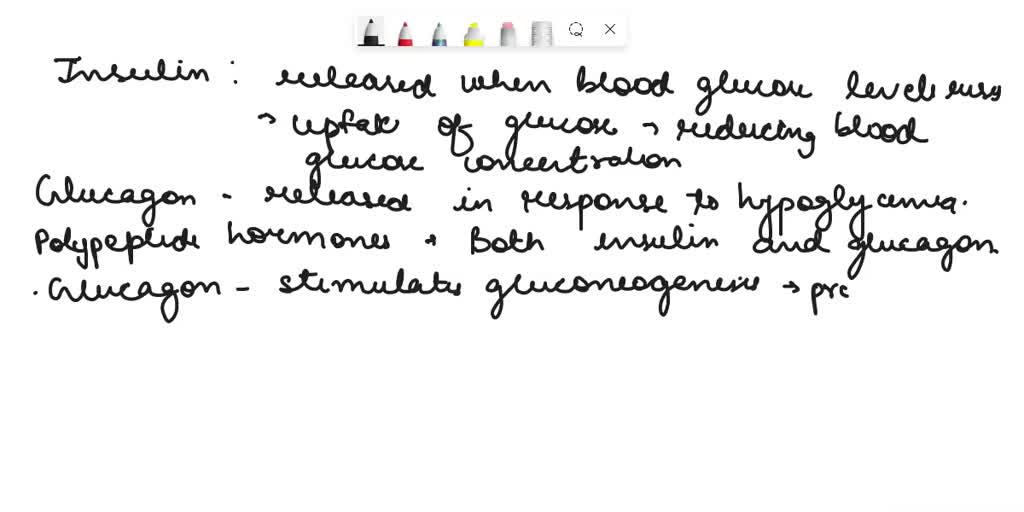 Insulin : released when blood glucose levels rises
→ uptake of glucose → reducing blood
glucose concentration
Glucagon - released in response to hypoglycemia.
Polypeptide hormones → Both insulin and glucagon.
. Glucagon - stimulates gluconeogenesis → pro